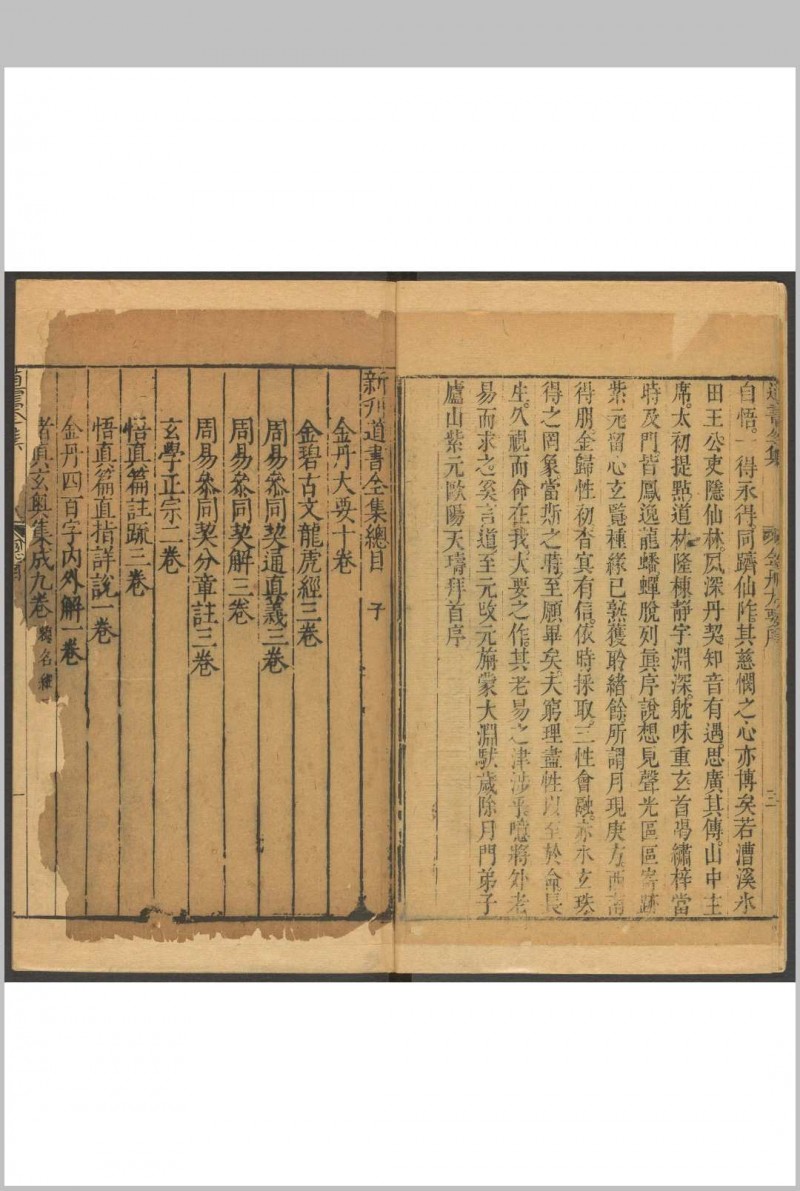 道書全集 金丹大要序 三
自悟。一得永得同躋仙阼。其慈憫之心亦博矣若漕溪水
田王公吏隱仙林。夙深丹契知音有遇。思廣其傳。山中主
席。太初提點道林隆棟靜宇淵深。躭味重玄首蜀繡梓當
時及門。皆鳳逸龍蟠蟬脫列眞序說想見聲光區區寄跡
紫元留心玄覽種緣已熟獲聆緒餘。所謂月現庚方。西南
得朋金歸性初杳冥有信。依時採取。三性會融。赤水玄珠
得之罔象當斯之時。至願畢矣。夫窮理盡性以至於命。長
生久視而命在我大要之作。其老易之津涉乎。噫將外老
易而求之。奚言道。至元改元旃蒙大淵獻歲除月門弟子
廬山紫元歐陽天璹拜首序
新刋道書全集總目 子
金丹大要十卷
金碧古文龍虎經三卷
周易叅同契通真義三卷
周易叅同契解三卷
周易叅同契分章註三卷
玄學正宗二卷
悟真篇註疏三卷
悟真篇直指詳說一卷
金丹四百字內外解一卷
諸真玄奧集成九卷
道書全集 總目 一